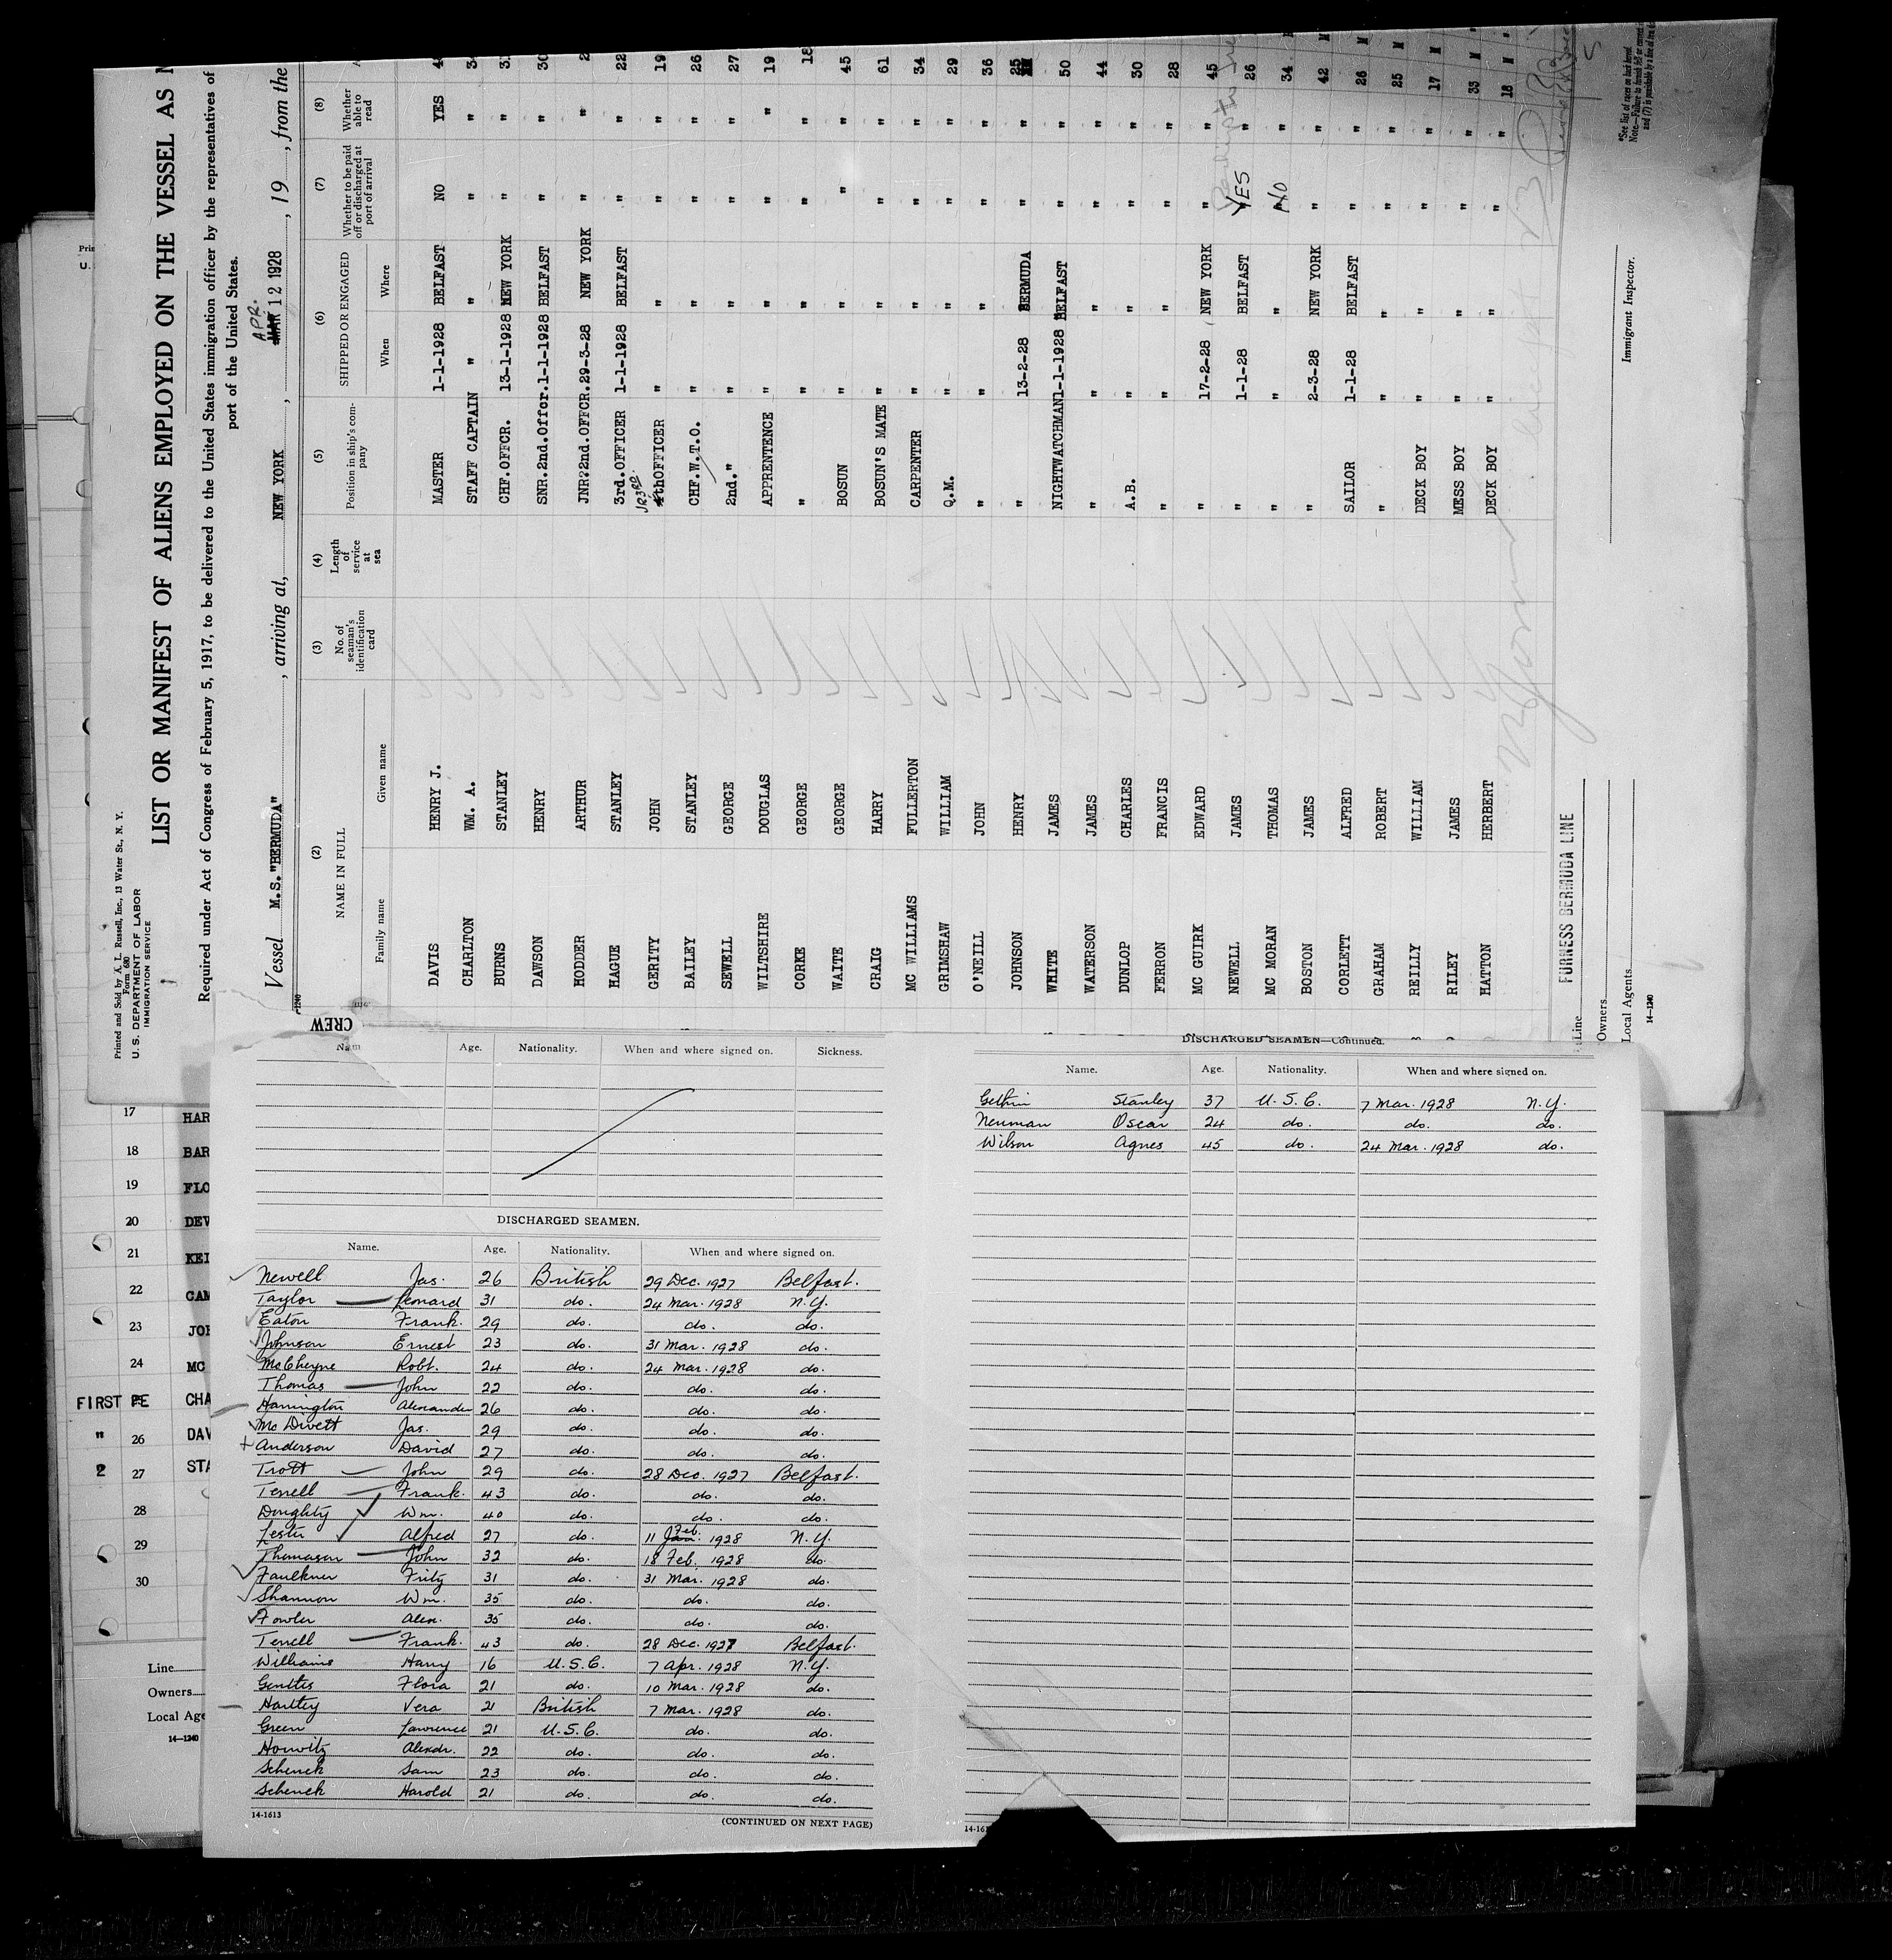 Printed and Sold by A. L. Russell, Inc., 13 Water St., N. Y.
Form 680
U. S. DEPARTMENT OF LABOR
IMMIGRATION SERVICE
LIST OR MANIFEST OF ALIENS EMPLOYED ON THE VESSEL AS
Required under Act of Congress of February 5, 1917, to be delivered to the United States immigration officer by the representatives of
port of the United States.
Vessel M.S."BERMUDA", arriving at, NEW YORK, APR. MAR 12 1928, 19 , from the
(2) (3) (4) (5) (6) (7) (8)
NAME IN FULL No. of seaman's identification card Length of service at sea Position in ship's company SHIPPED OR ENGAGED Whether to be paid off or discharged at port of arrival Whether able to read
Family name Given name When Where
DAVIS HENRY J. MASTER 1-1-1928 BELFAST NO YES
CHARLTON WM. A. STAFF CAPTAIN " " " "
BURNS STANLEY CHF.OFFCR. 13-1-1928 NEW YORK " "
DAWSON HENRY SNR.2nd.Offcr. 1-1-1928 BELFAST " " 30
HODDER ARTHUR JNR?2nd.OFFCR. 29-3-28 NEW YORK " "
HAGUE STANLEY 3rd.OFFICER 1-1-1928 BELFAST " " 22
GERITY JOHN JR3RD. 4thOFFICER " " " " 19
BAILEY STANLEY CHF.W.T.O. " " " " 26
SEWELL GEORGE 2nd." " " " " 27
WILTSHIRE DOUGLAS APPRENTENCE " " " " 19
CORKE GEORGE " " " " " 18
WAITE GEORGE BOSUN " " " " 45
CRAIG HARRY BOSUN'S MATE " " " " 61
MC WILLIAMS FULLERTON CARPENTER " " " " 34
GRIMSHAW WILLIAM Q.M. " " " " 29
O'NEILL JOHN " " " " " 36
JOHNSON HENRY " 13-2-28 BERMUDA " " 25
WHITE JAMES NIGHTWATCHMAN 1-1-1928 BELFAST " " 50
WATERSON JAMES " " " " " 44
DUNLOP CHARLES A.B. " " " " 30
FERRON FRANCIS " " " " " 28
MC GUIRK EDWARD " 17-2-28 NEW YORK " " 45
NEWELL JAMES " 1-1-28 BELFAST YES " 26
MC MORAN THOMAS " " " NO " 34
BOSTON JAMES " 2-3-28 NEW YORK " " 42 M
CORLETT ALFRED SAILOR 1-1-28 BELFAST " " 26 M
GRAHAM ROBERT " " " " " 25 M
REILLY WILLIAM DECK BOY " " " " 17 M
RILEY JAMES MESS BOY " " " " 33 M
HATTON HERBERT DECK BOY " " " " 18 M
FURNESS BERMUDA LINE
Line
Owners
Local Agents
14-1240
Immigrant Inspector.
*See list of races on back hereof.
CREW
Age. Nationality. When and where signed on. Sickness.
DISCHARGED SEAMEN.
Name. Age. Nationality. When and where signed on.
Newell Jas. 26 British 29 Dec. 1927 Belfast.
Taylor Leonard 31 do. 24 Mar. 1928 N.Y.
Eaton Frank. 29 do. do. do.
Johnson Ernest 23 do. 31 Mar. 1928 do.
McCheyne Robt. 24 do. 24 Mar. 1928 do.
Thomas John 22 do. do. do.
Harrington Alexander 26 do. do. do.
Mc Divett Jas. 29 do. do. do.
Anderson David 27 do. do. do.
Trott John 29 do. 28 Dec. 1927 Belfast.
Terrell Frank. 43 do. do. do.
Doughty Wm. 40 do. do. do.
Lester Alfred 27 do. 11 Feb. 1928 N.Y.
Thomason John 32 do. 18 Feb. 1928 do.
Faulkner Fritz 31 do. 31 Mar. 1928 do.
Shannon Wm. 35 do. do. do.
Fowler Alex. 35 do. do. do.
Terrell Frank. 43 do. 28 Dec. 1927 Belfast.
Williams Harry 16 U.S.C. 7 Apr. 1928 N.Y.
Flora 21 do. 10 Mar. 1928 do.
Hartley Vera 21 British 7 Mar. 1928 do.
Green Lawrence 21 U.S.C. do. do.
Horwitz Alexdr. 22 do. do. do.
Schenck Sam 23 do. do. do.
Schenck Harold 21 do. do. do.
14-1613
(CONTINUED ON NEXT PAGE)
DISCHARGED SEAMEN—Continued.
Name. Age. Nationality. When and where signed on.
Gethin Stanley 37 U.S.C. 7 Mar. 1928 N.Y.
Neuman Oscar 24 do. do. do.
Wilson Agnes 45 do. 24 Mar. 1928 do.
17 HAR
18 BAR
19 FLO
20 DEV
21 KEI
22 GAM
23 JOH
24 MC
FIRST PE CHA
" 26 DAV
2 27 STA
28
29
30
Line
Owners
Local Age
14-1240